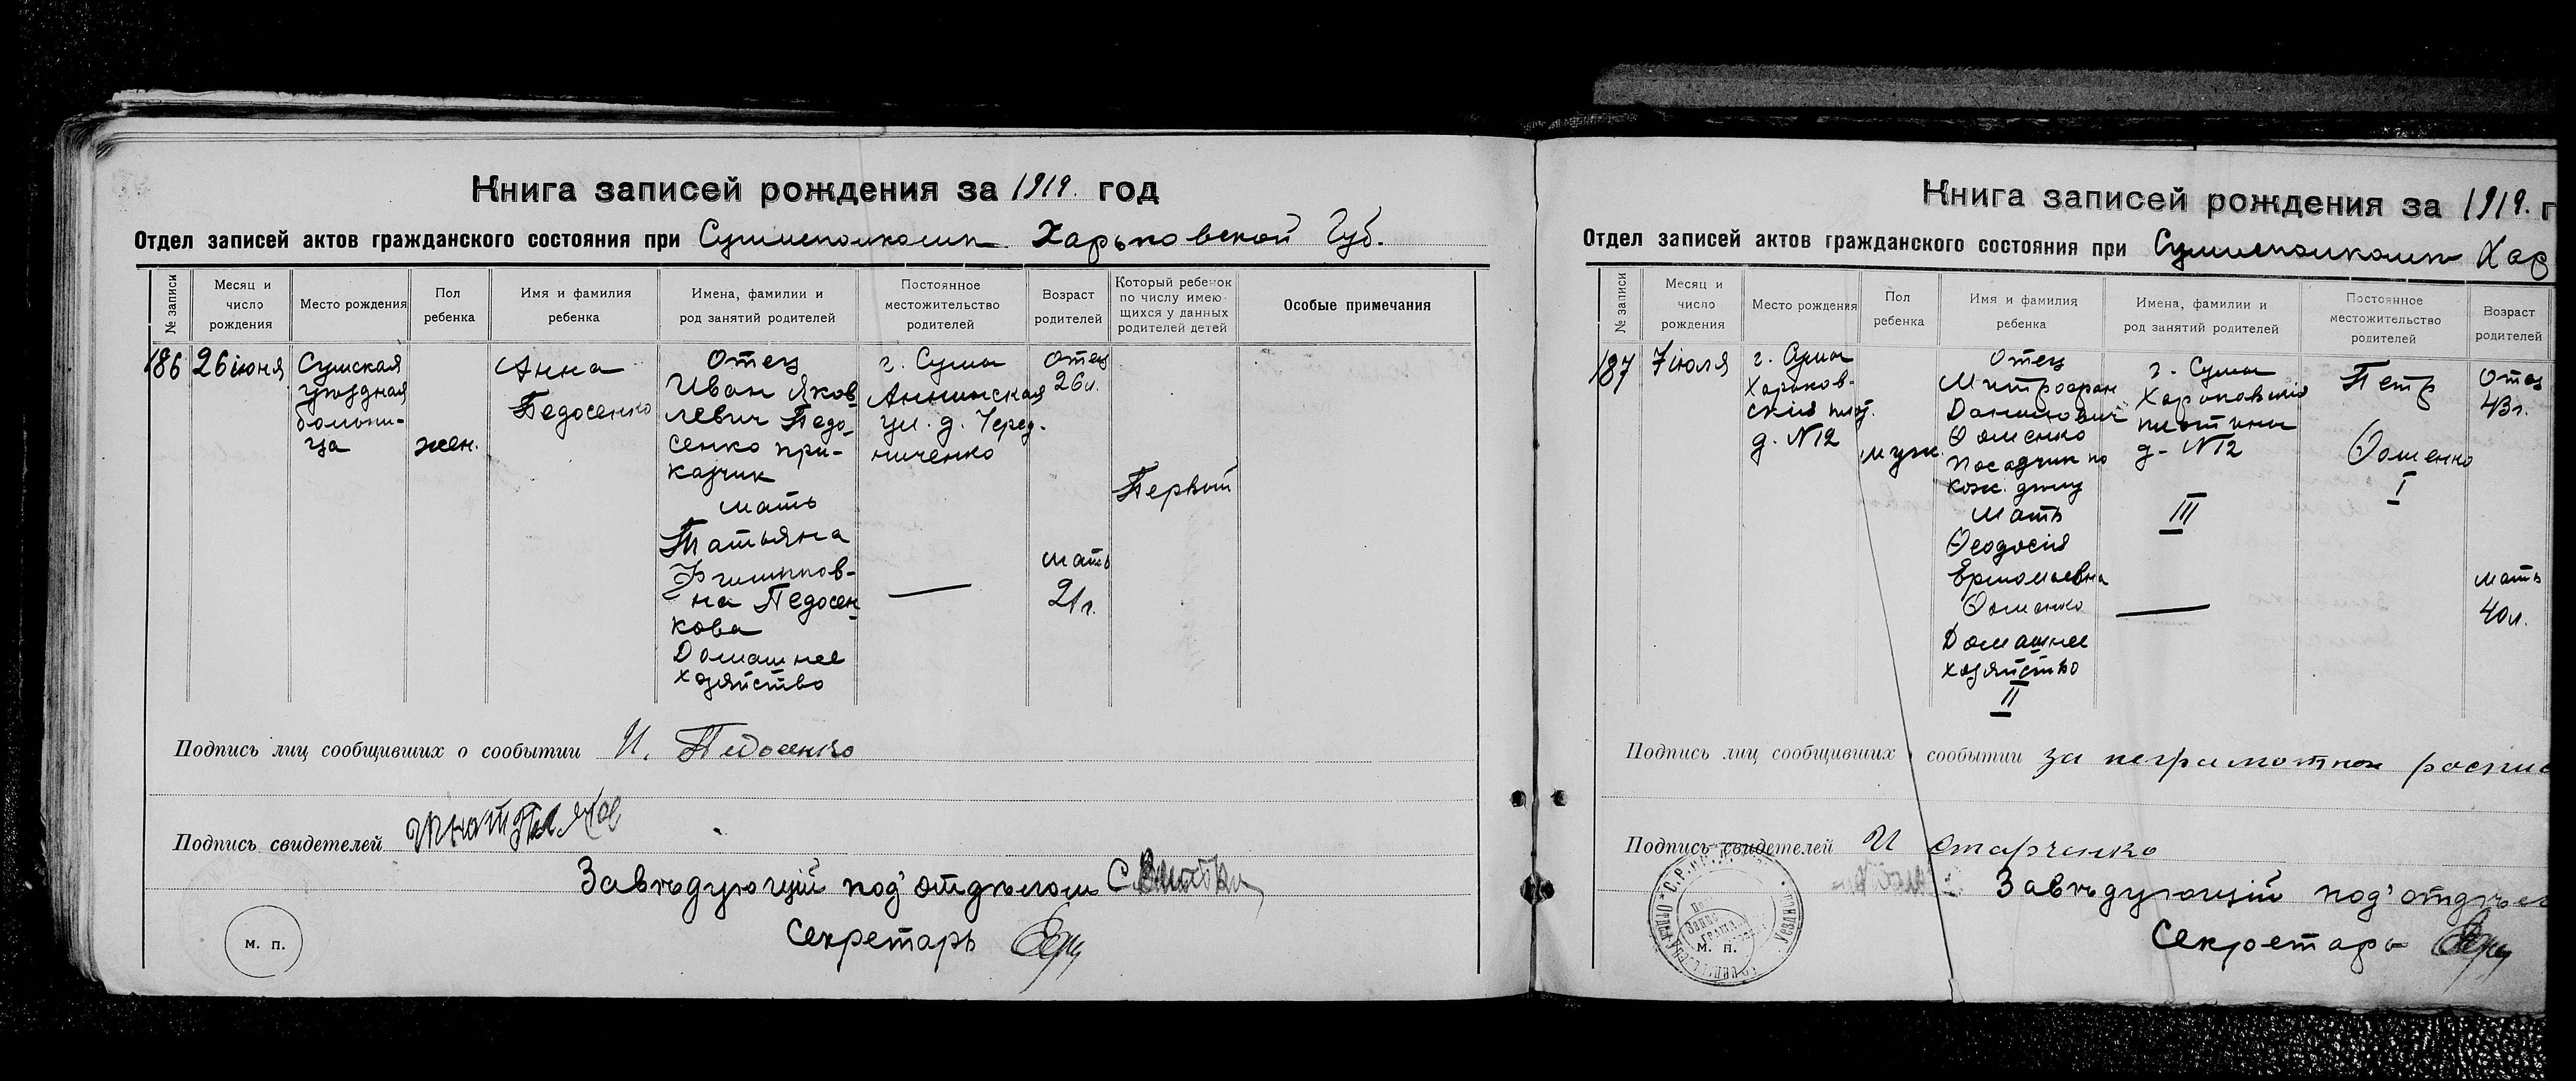 Книга записей рождения за 1919. год
Отдел записей актов гражданского состояния при Сумисполкоме Харьковской Губ.
№ записи
Месяц и
число
рождения
Место рождения
Пол
ребенка
Имя и фамилия
ребенка
Имена, фамилии и
род занятий родителей
Постоянное
местожительство
родителей
Возраст
родителей
Который ребенок
по числу имею-
щихся у данных
родителей детей
Особые примечания
186
26 іюня
Сумская
уездная
больни-
ца
жен.
Анна
Педосенко
Отец
Иван Яков-
левич Педо-
сенко при-
казчик
мать
Татьяна
Филиппов-
на Педосен-
кова
Домашнее
хозяйство
г. Сумы
Аннинская
ул. д. Черед-
ниченко
—
Отец
26 л.
мать
21 г.
Первый
Подпись лиц сообщивших о сообытии И. Педосенко
Подпись свидетелей
Заведующій под'отделом
Секретарь
м. п.
Книга записей рождения за 1919. г
Отдел записей актов гражданского состояния при Сумисполкоме Хар
№ записи
Месяц и
число
рождения
Место рождения
Пол
ребенка
Имя и фамилия
ребенка
Имена, фамилии и
род занятий родителей
Постоянное
местожительство
родителей
Возраст
родителей
187
7 іюля
г. Сумы
Харьков-
ская плот.
д. №12
муж.
Отец
Митрофан
Данилович
Ѳоменко
Посадчик по
кож. делу
Мать
Ѳеодосія
Ермолаевна
Ѳоменко
Домашнее
хозяйство
II
г. Сумы
Харьковская
плотина
д. №12
III
—
Петр
Ѳоменко
I
Отец
43 г.
мать
40 л.
Подпись лиц сообщивших о сообытии за неграмотной роспис
Подпись свидетелей И Старченко
Заведующій под'отдел
Секретарь
м. п.